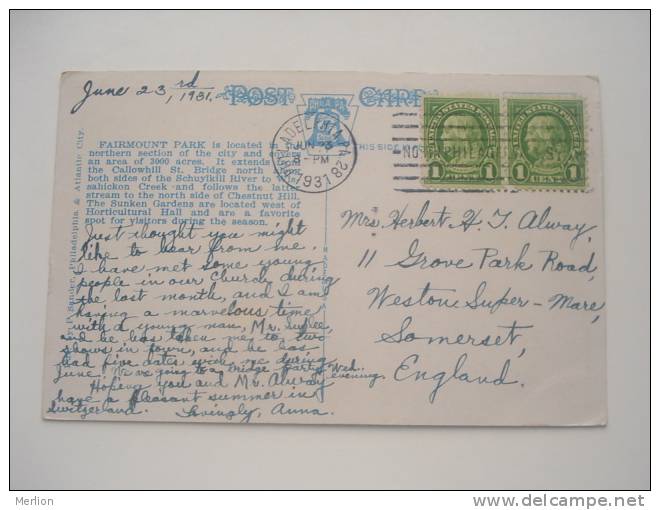 June 23rd, 1931.
POST CARD
PHILADELPHIA, PA. 82
JUN 23
8-PM
1931
THIS SIDE
UNITED STATES POSTAGE
UNITED STATES POSTAGE
1 CENT 1
1 CENT 1
FAIRMOUNT PARK is located in the
northern section of the city and covers
an area of 3000 acres. It extends from
the Callowhill St. Bridge north along
both sides of the Schuylkill River to Wis-
sahickon Creek and follows the latter
stream to the north side of Chestnut Hill.
The Sunken Gardens are located west of
Horticultural Hall and are a favorite
spot for visitors during the season.
Sander, Philadelphia & Atlantic City.
Just thought you might
like to hear from me.
I have met some young
people in our Church during
the last month, and I am
having a marvelous time
with a young man, Mr.
and he has taken me to two
shows in town, and he has
had five dates with me during
June. We're going to a bridge party Wed.
evening.
Hoping you and Mr. Alway
have a pleasant summer in
Switzerland. Lovingly, Anna.
Mrs. Herbert H. T. Alway,
11 Grove Park Road,
Weston Super-Mare,
Somerset,
England.
Merlion
www.delcampe.net